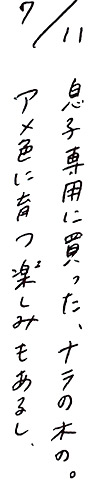 7/11
息子専用に買った、ナラの木の。
アメ色に育つ楽しみもあるし、